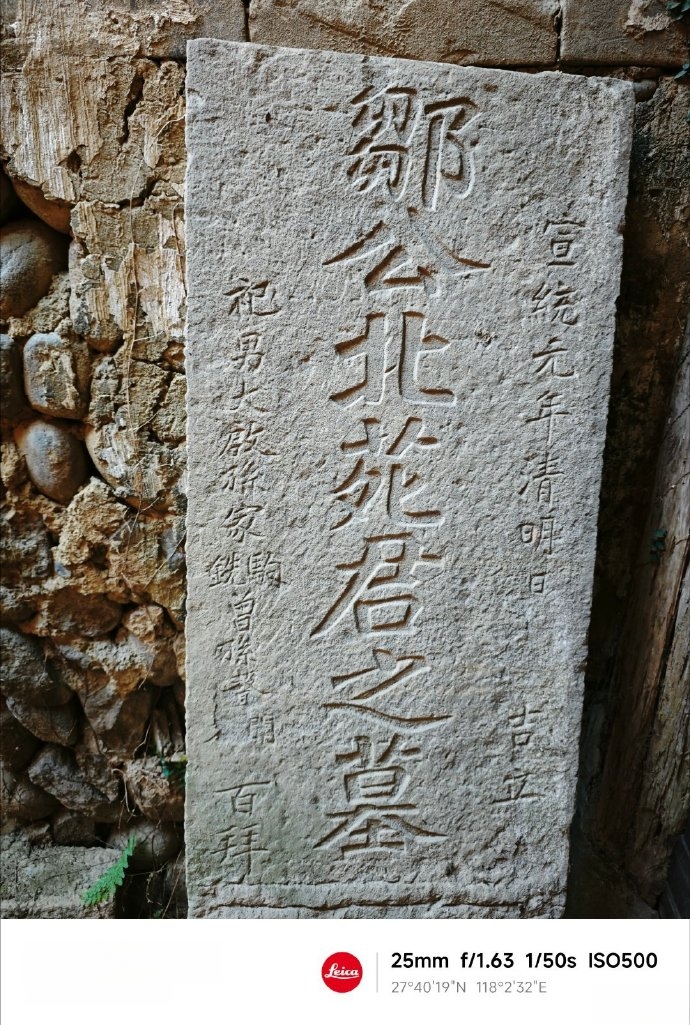 宣統元年清明日吉立
鄒公北苑君之墓
祀男大啟孫家駒銑曾孫聲聞百拜
Leica
25mm f/1.63 1/50s ISO500
27°40'19"N 118°2'32"E